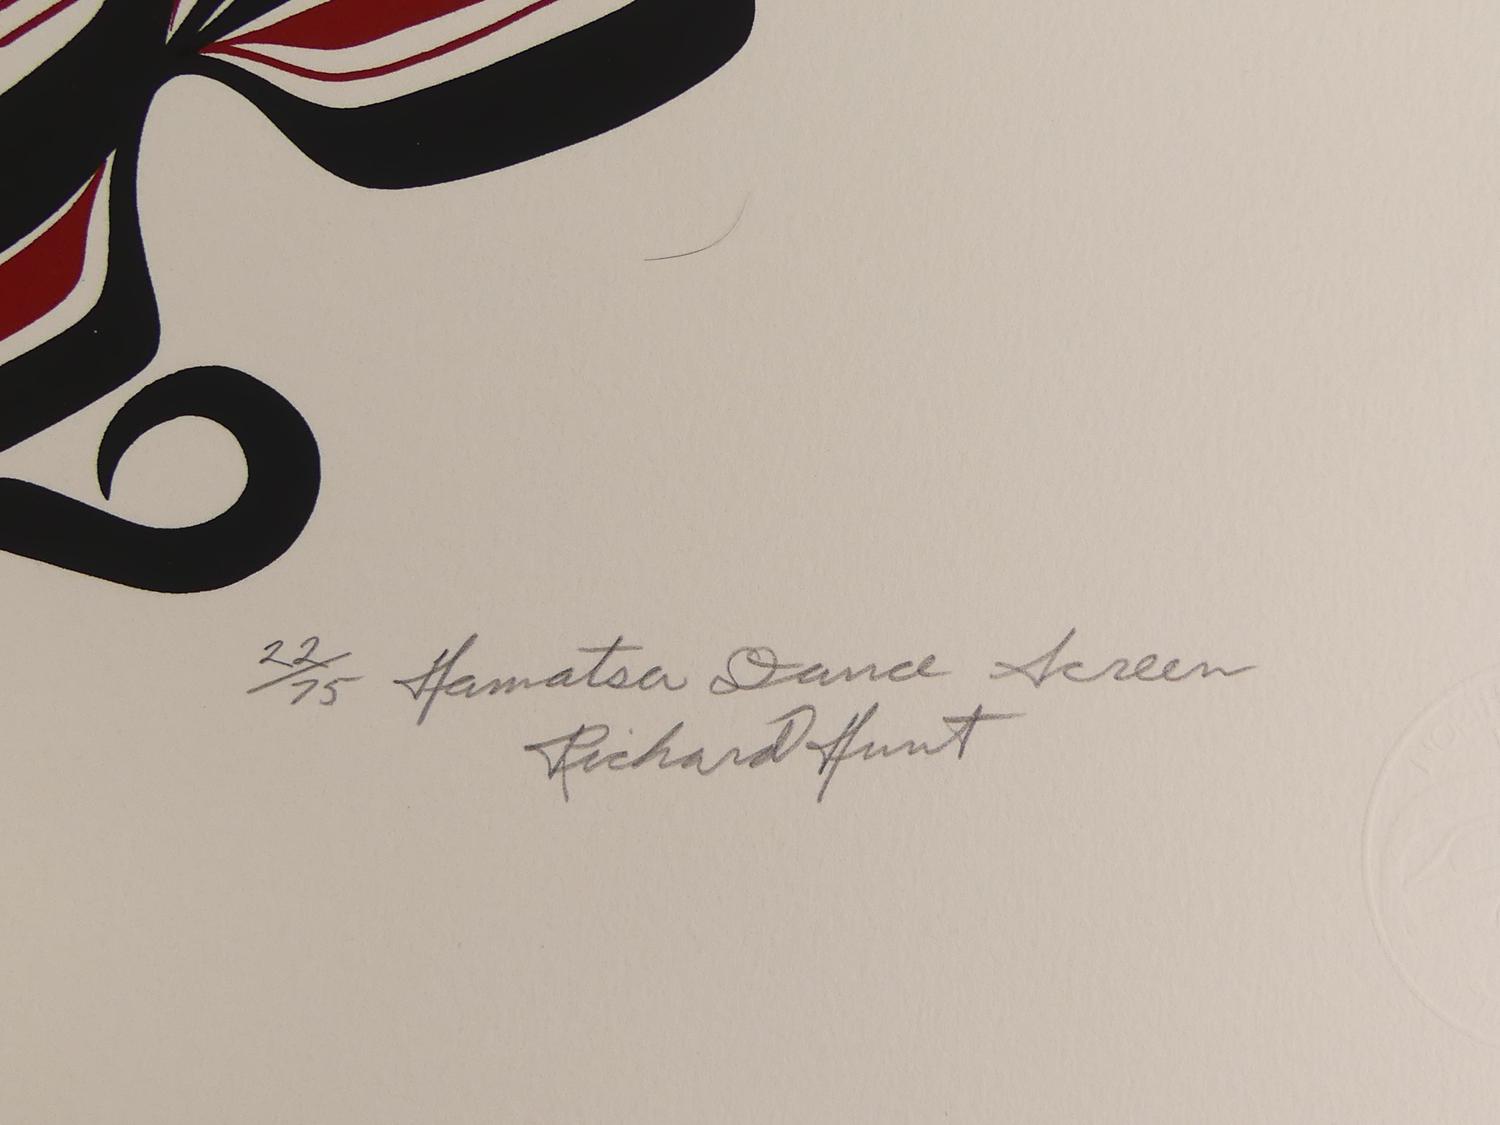 22/75 Hamatsa Dance Screen
Richard Hunt